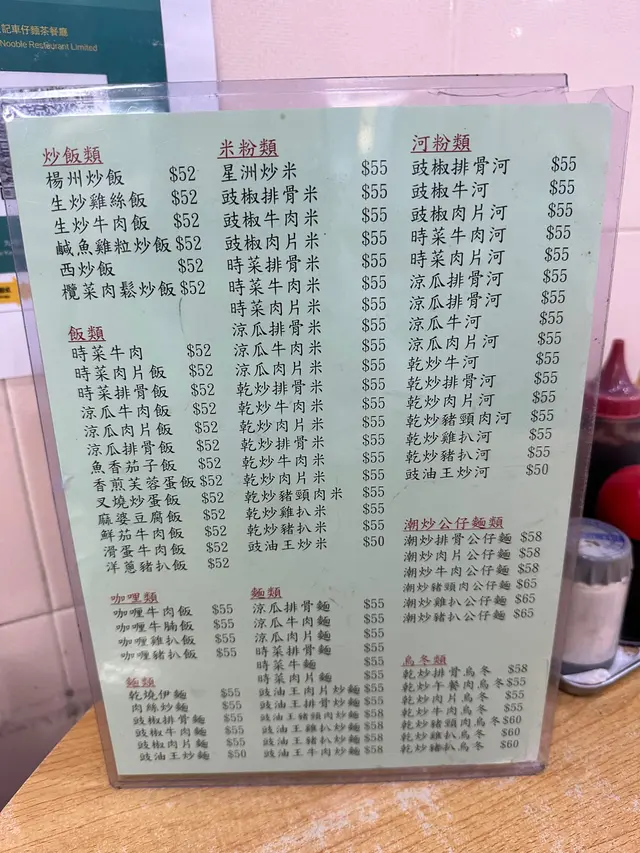 記車仔麵茶餐廳
Nooble Restaurant Limited
炒飯類
楊州炒飯 $52
生炒雞絲飯 $52
生炒牛肉飯 $52
鹹魚雞粒炒飯 $52
西炒飯 $52
欖菜肉鬆炒飯 $52
飯類
時菜牛肉 $52
時菜肉片飯 $52
時菜排骨飯 $52
涼瓜牛肉飯 $52
涼瓜肉片飯 $52
涼瓜排骨飯 $52
魚香茄子飯 $52
香煎芙蓉蛋飯 $52
叉燒炒蛋飯 $52
麻婆豆腐飯 $52
鮮茄牛肉飯 $52
滑蛋牛肉飯 $52
洋蔥豬扒飯 $52
咖喱類
咖喱牛肉飯 $55
咖喱牛腩飯 $55
咖喱雞扒飯 $55
咖喱豬扒飯 $55
麵類
乾燒伊麵 $55
肉絲炒麵 $55
豉椒排骨麵 $55
豉椒牛肉麵 $55
豉椒肉片麵 $55
豉油王炒麵 $50
米粉類
星洲炒米 $55
豉椒排骨米 $55
豉椒牛肉米 $55
豉椒肉片米 $55
時菜排骨米 $55
時菜牛肉米 $55
時菜肉片米 $55
涼瓜排骨米 $55
涼瓜牛肉米 $55
涼瓜肉片米 $55
乾炒排骨米 $55
乾炒牛肉米 $55
乾炒肉片米 $55
乾炒排骨米 $55
乾炒牛肉米 $55
乾炒肉片米 $55
乾炒豬頸肉米 $55
乾炒雞扒米 $55
乾炒豬扒米 $55
豉油王炒米 $50
麵類
涼瓜排骨麵 $55
涼瓜牛肉麵 $55
涼瓜肉片麵 $55
時菜排骨麵 $55
時菜牛麵 $55
時菜肉片麵 $55
豉油王肉片炒麵 $55
豉油王排骨炒麵 $55
豉油王豬頸肉炒麵 $58
豉油王雞扒炒麵 $58
豉油王豬扒炒麵 $58
豉油王牛肉炒麵 $58
河粉類
豉椒排骨河 $55
豉椒牛河 $55
豉椒肉片河 $55
時菜牛肉河 $55
時菜肉片河 $55
涼瓜排骨河 $55
涼瓜排骨河 $55
涼瓜牛河 $55
涼瓜肉片河 $55
乾炒牛河 $55
乾炒排骨河 $55
乾炒肉片河 $55
乾炒豬頸肉河 $55
乾炒雞扒河 $55
乾炒豬扒河 $55
豉油王炒河 $50
潮炒公仔麵類
潮炒排骨公仔麵 $58
潮炒肉片公仔麵 $58
潮炒牛肉公仔麵 $58
潮炒豬頸肉公仔麵 $65
潮炒雞扒公仔麵 $65
潮炒豬扒公仔麵 $65
烏冬類
乾炒排骨烏冬 $58
乾炒午餐肉烏冬 $55
乾炒肉片烏冬 $55
乾炒牛肉烏冬 $55
乾炒豬頸肉烏冬 $60
乾炒雞扒烏冬 $60
乾炒豬扒烏冬 $60